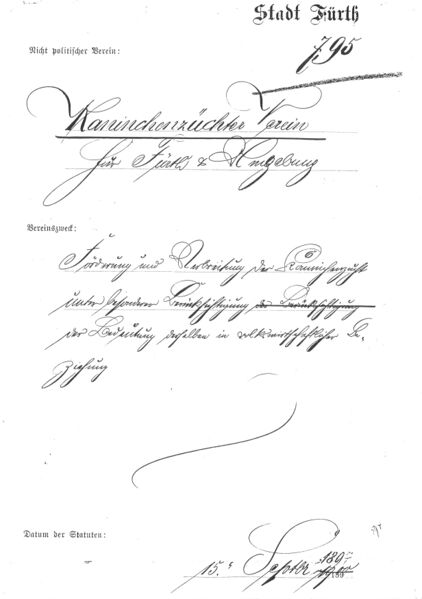 Stadt Fürth
795
Nicht politischer Verein:
Kaninchenzüchter Verein
für Fürth & Umgebung
Vereinszweck:
Förderung und Verbreitung der Kaninchenzucht
unter besonderer Berücksichtigung der Berücksichtigung
der Bedeutung derselben in volkswirtschaftlicher Be-
ziehung
Datum der Statuten:
15. Septbr 1897